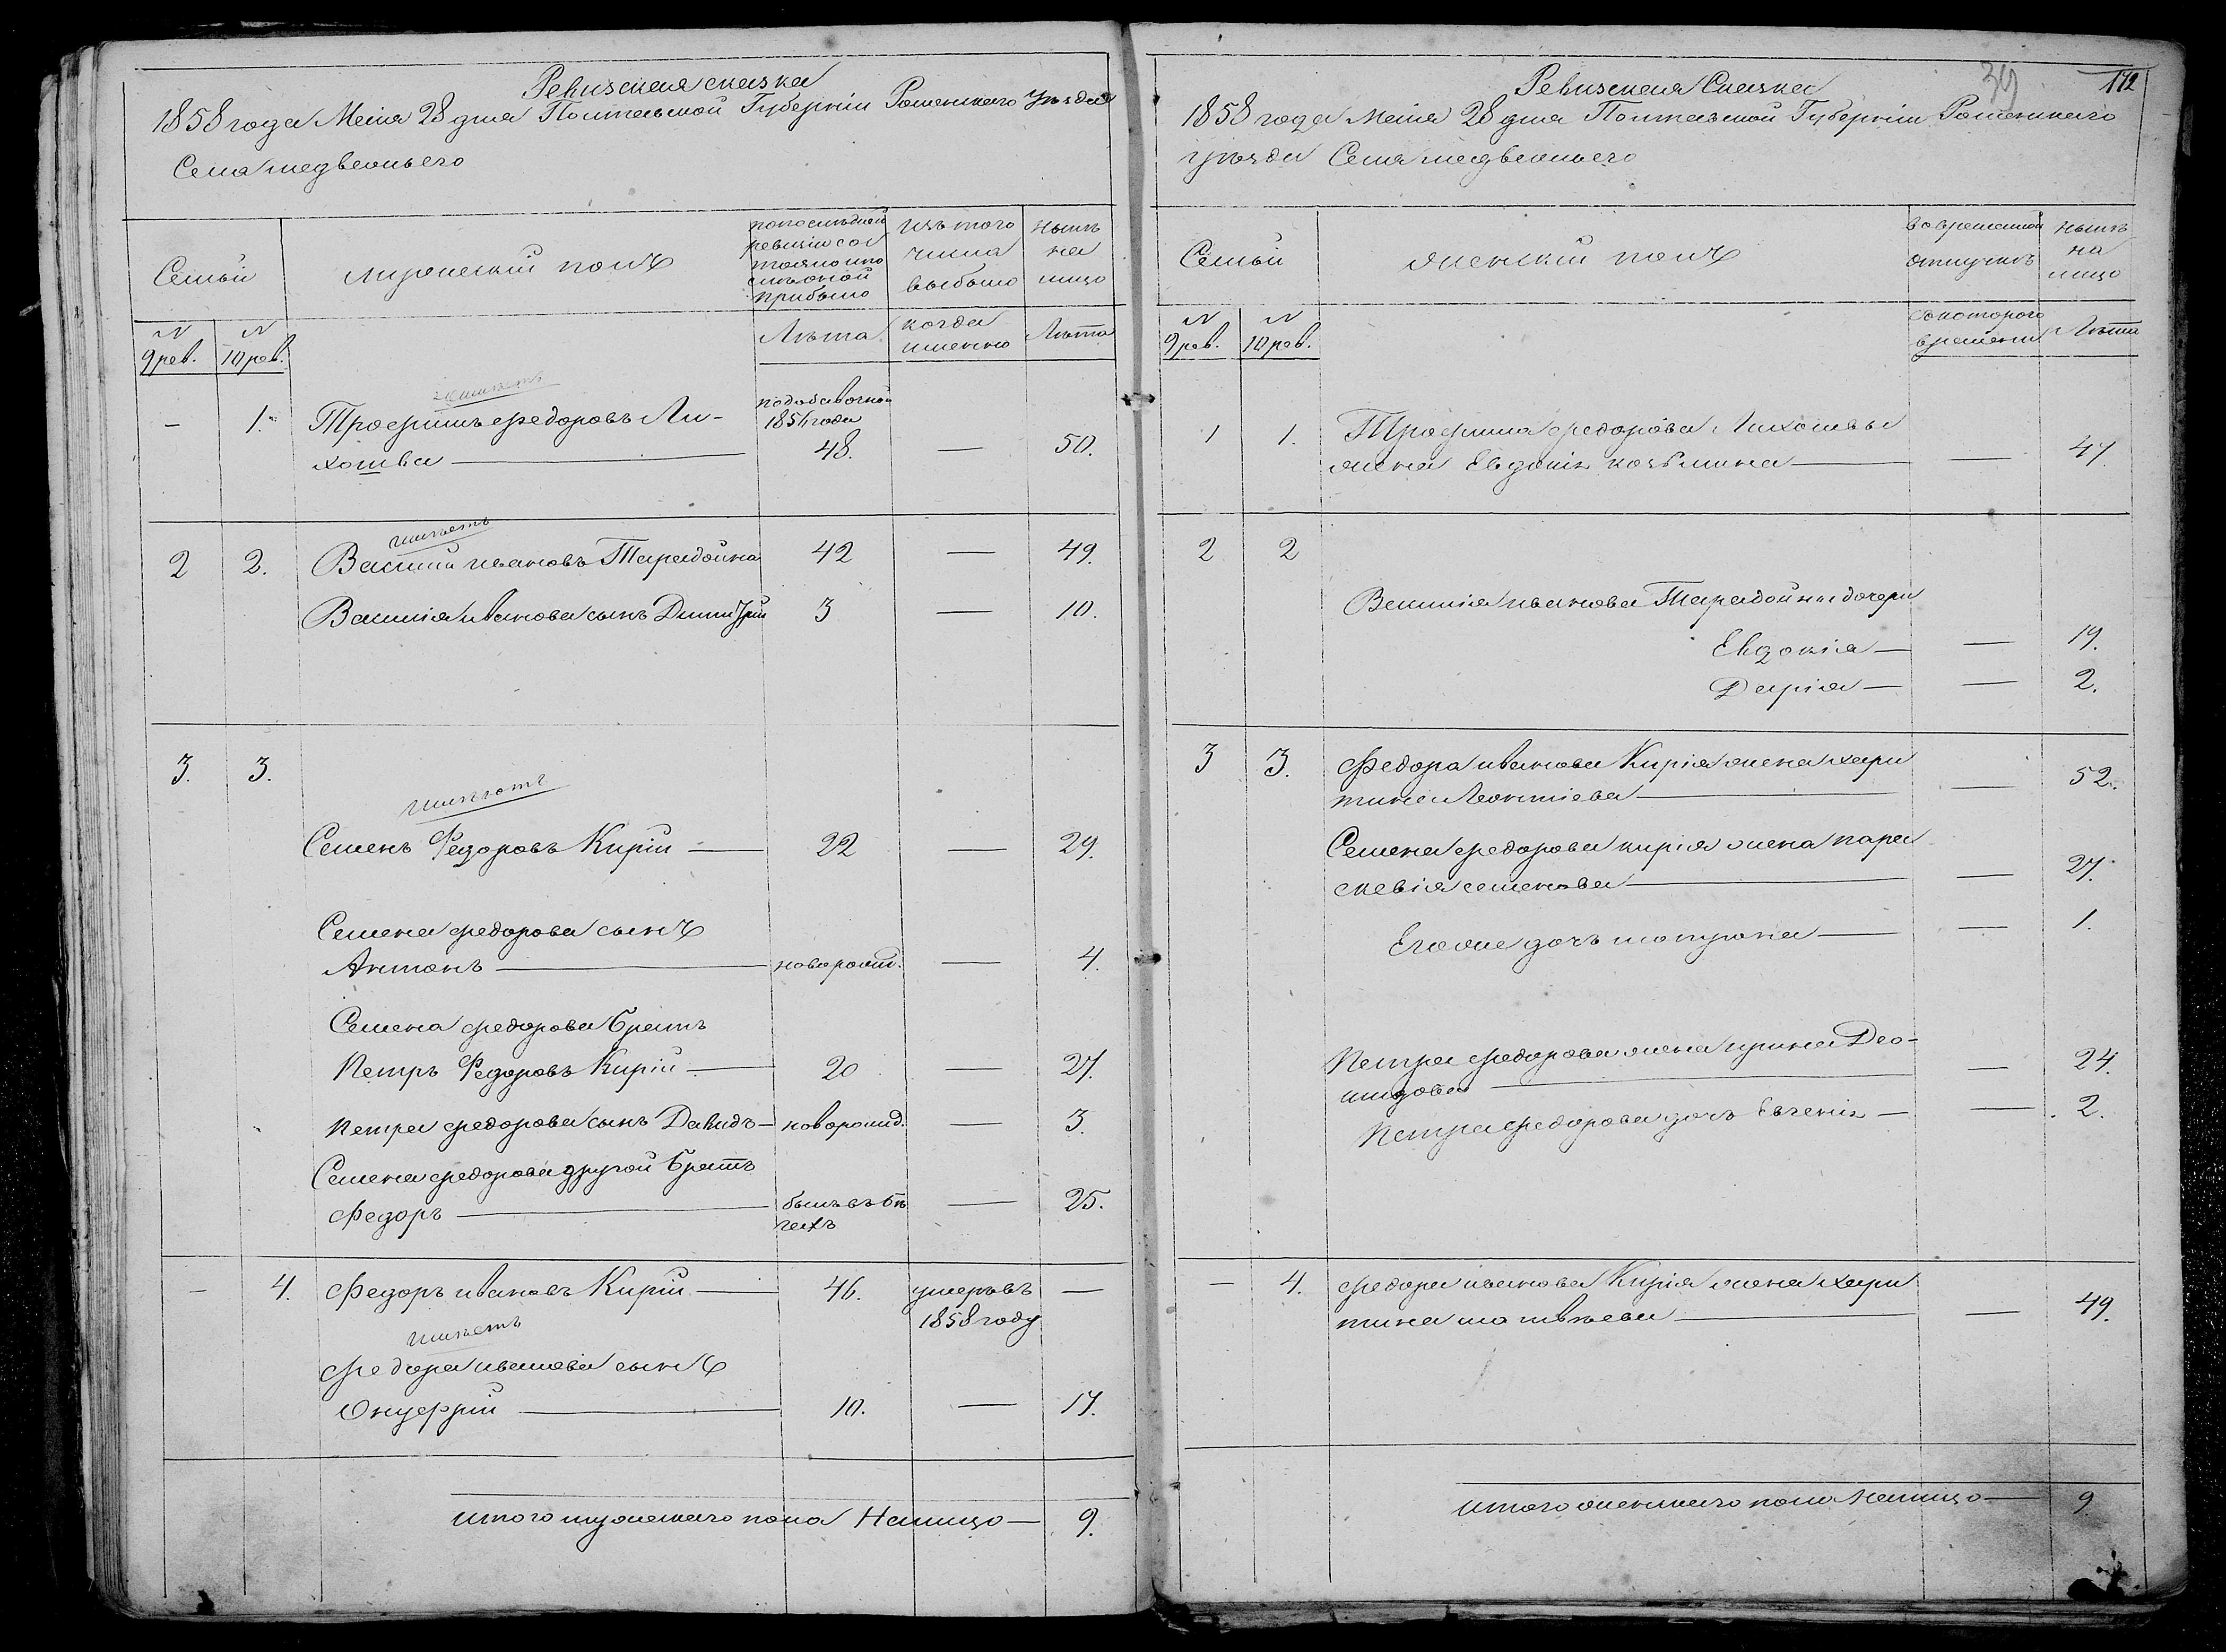 Ревизская сказка
1858 года Маія 28 дня Полтавской Губерніи Роменскаго Уѣзда
Села медвежьего
Семьи
мужескій полъ
по последней
ревизіи сос
тояло и по
слѣ оной
прибыло
изъ того
числа
выбыло
нынѣ
на
лицо
№
9 рев.
№
10 рев.
Лѣта
когда
именно
Лѣта
- 1. Трофимъ Федоровъ Ли-
хошва
по добавочной
1851 года
48. — 50.
имѣетъ
2 2. Василій ивановъ Тарадойна 42 — 49.
Василія иванова сынъ Димитрій 3 — 10.
3. 3.
имѣютъ
Семенъ Федоровъ Кирій — 22 — 29.
Семена федорова сынъ
Антонъ — новорожд. — 4.
Семена федорова братъ
Петръ Федоровъ Кирій — 20 — 27.
Петра федорова сынъ Давидъ — новорожд. — 3.
Семена федорова другой братъ
Федоръ — былъ въ бѣ
гахъ — 25.
- 4. Федоръ ивановъ Кирій — 46. умеръ въ
1858 году —
имѣетъ
Федора иванова сынъ
Онуфрій — 10. — 17.
Итого мужескаго пола Налицо — 9.
39 172
Ревизская Сказка
1858 года Маія 28 дня Полтавской Губерніи Роменскаго
уѣзда Села медвежьего
Семьи
женскій полъ
во временной
отлучкѣ
нынѣ
на
лицо
№
9 рев.
№
10 рев.
съ котораго
времени
Лѣта
1 1. Трофима федорова Лихошвы
жена Евдокія козьмина — — 47.
2 2
Василія иванова Тарадойны дочери
Евдокія — — 19.
Дарія — — 2.
3 3. Федора иванова Кирія жена хари
тина Леонтіева — — 52.
Семена федорова кирія жена пара
скевія семенова — — 27.
Его же дочь матрона — — 1.
Петра федорова жена ирина Део-
мидова — — 24.
Петра федорова дочь Евгенія — — 2.
- 4. Федора иванова Кирія жена хари
тина матвѣева — — 49.
Итого женскаго пола Налицо — 9